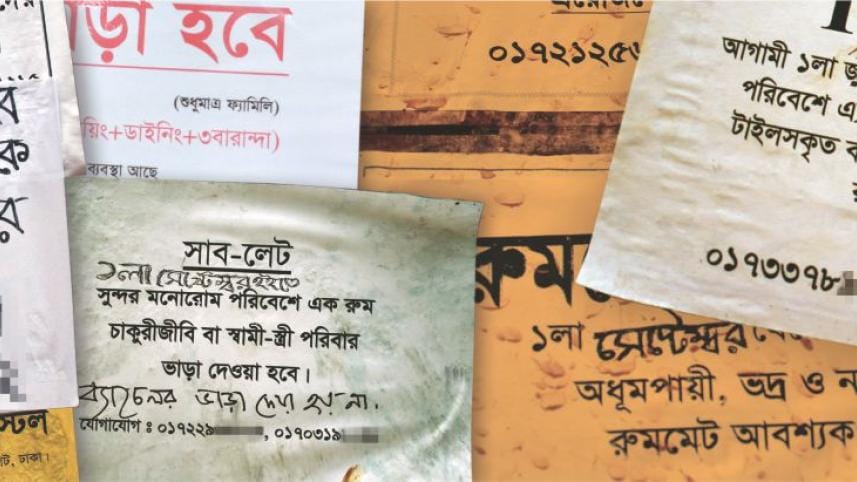 ড়া হবে
(শুধুমাত্র ফ্যামিলি)
য়িং+ডাইনিং+৩বারান্দা)
ব্যবস্থা আছে
০১৭২১২৫৬
আগামী ১লা জু
পরিবেশে এ
টাইলসকৃত
০১৭৩৩৭৮
সাব-লেট
১লা সেপ্টেম্বর হইতে
সুন্দর মনোরোম পরিবেশে এক রুম
চাকুরীজীবি বা স্বামী-স্ত্রী পরিবার
ভাড়া দেওয়া হবে।
ব্যাচেলর ভাড়া দেয়া হয় না.
যোগাযোগ : ০১৭২২৯, ০১৭০৩১৯
রুম
১লা সেপ্টেম্বর
অধূমপায়ী, ভদ্র ও ন
রুমমেট আবশ্যক
স্টেল
ট, ঢাকা।